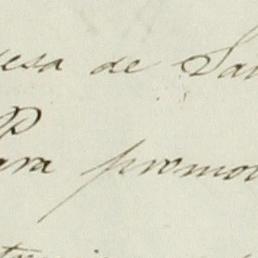 esa de San
Para promo